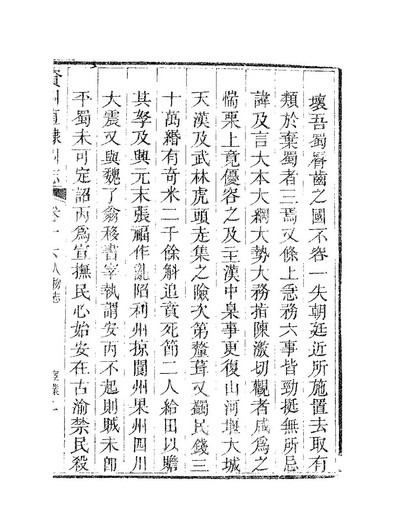 壞吾蜀脣齒之國不容一失朝廷近所施置去取有
類於棄蜀者三焉又條上急務六事皆勁挺無所忌
諱及言大本大綱大勢大務指陳激切觀者咸爲之
惴栗上竟優容之及主漢中臬事更復山河堰大城
天漢及武林虎頭走集之險次第葺又蠲民錢三
十萬緡有奇米二千餘斛追賁死節二人給田以贍
其孥及興元末張福作亂陷利州掠閬州果州四川
大震又與魏了翁移書宰執謂安丙不起則賊未卽
平蜀未可定詔丙爲宣撫民心始安在古渝禁民殺
資州直隸州志
卷十六人物志